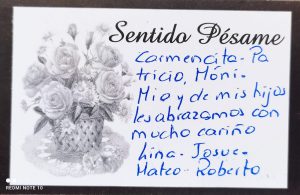 Sentido Pésame
Carmencita - Pa
tricio, Móni-
Mio y de mis hijos
les abrazamos con
mucho cariño
Lina - Josue -
Mateo - Roberto
REDMI NOTE 10